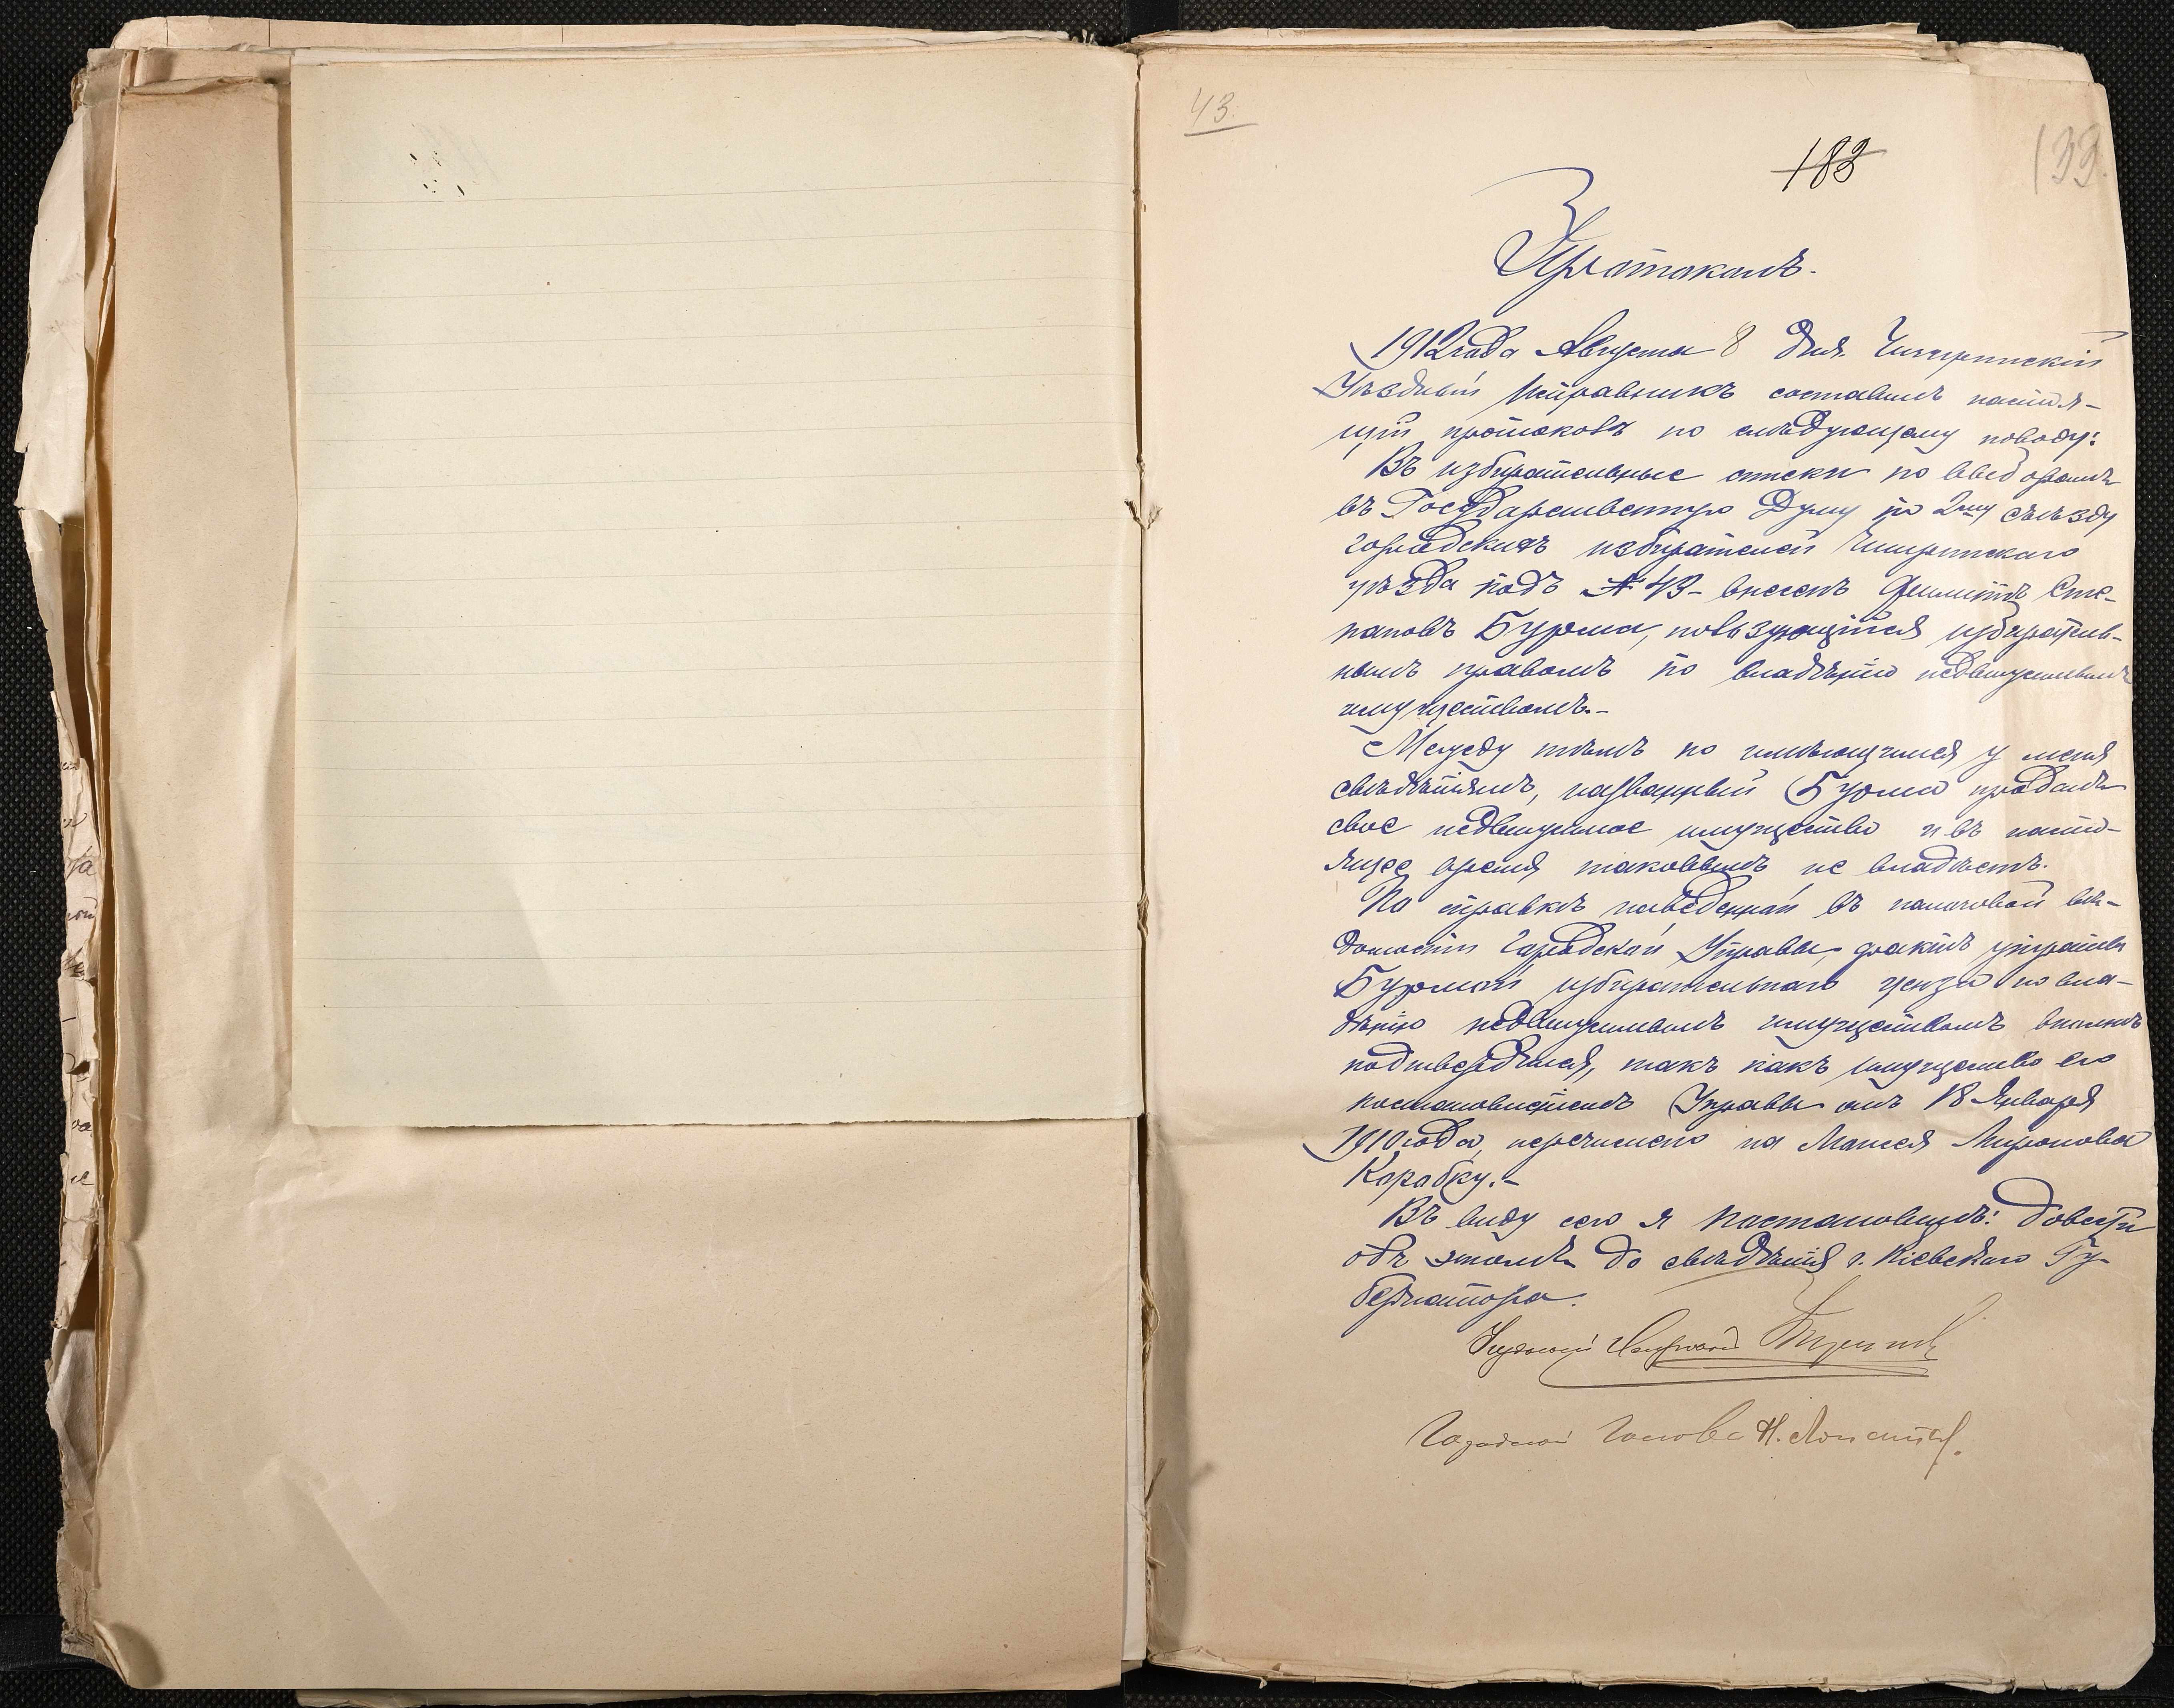 43.
183
139.
Протоколъ.
1912 года Августа 8 дня. Чигиринскій
Уѣздный Исправникъ составилъ настоя-
щій протоколъ по слѣдующему поводу:
Въ избирательные списки по выборамъ
въ Государственную Думу по 2му съѣзду
городскихъ избирателей Чигиринскаго
уѣзда подъ № 43 - внесенъ Филиппъ Сте-
пановъ Бурма, пользующійся избиратель-
нымъ правомъ по владѣнію недвижимымъ
имуществомъ.-
Между тѣмъ по имѣющимся у меня
свѣдѣніямъ, названный Бурма продалъ
свое недвижимое имущество и въ насто-
ящее время таковымъ не владѣетъ.
По справкѣ наведенной въ налоговой вѣ-
домости Городской Управы, фактъ утраты
Бурмой избирательнаго ценза по вла-
дѣнію недвижимымъ имуществомъ вполнѣ
подтвердился, такъ какъ имущество его
постановленіемъ Управы отъ 18 Января
1910 года, перечислено на Моисея Миронова
Коробку.-
Въ виду сего я постановилъ: довести
объ этомъ до свѣдѣнія г. Кіевскаго Гу-
бернатора.
Уѣздный Исправникъ
Городской Голова Н.